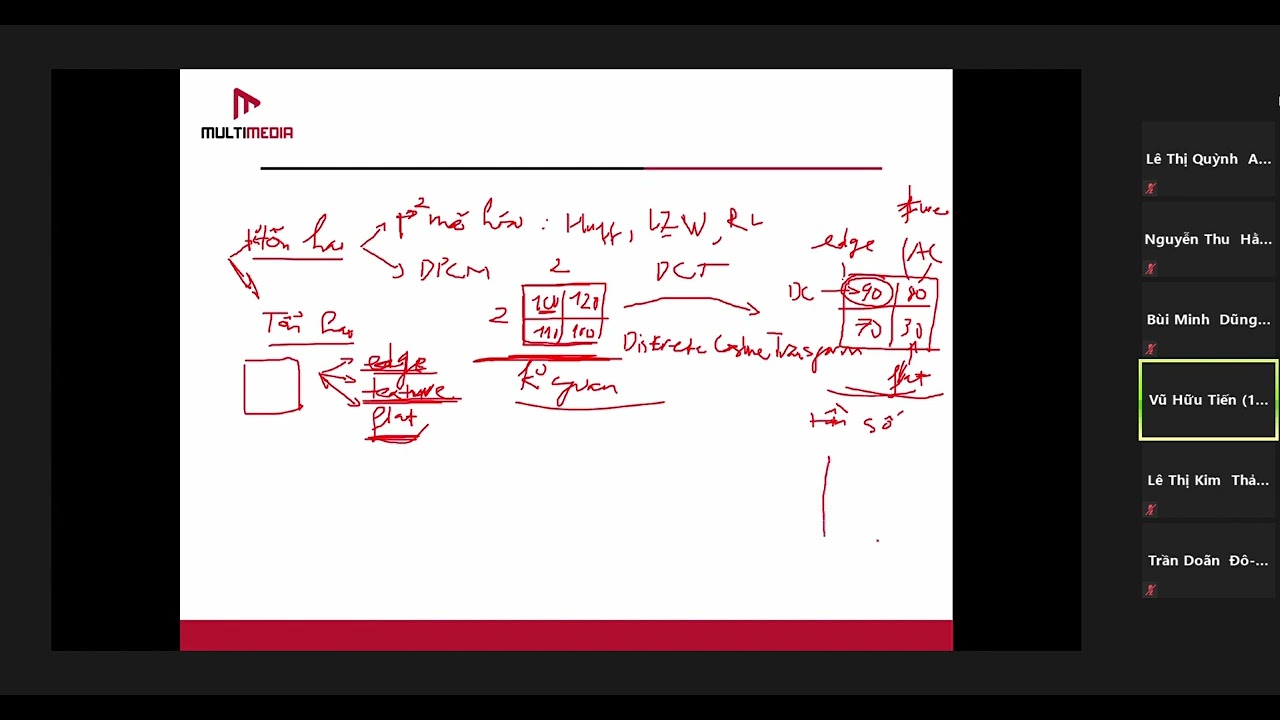 MULTIMEDIA
P² mã hóa : Huff, LZW, RL
DPCM
Tổn hao
edge
texture
flat
2
2
100 120
110 100
k⁰ gian
DCT
Discrete Cosine Transform
edge
AC
DC
90 80
70 30
flat
tần số
Lê Thị Quỳnh A...
Nguyễn Thu Hằ...
Bùi Minh Dũng...
Vũ Hữu Tiến (1...
Lê Thị Kim Thả...
Trần Doãn Đô-...